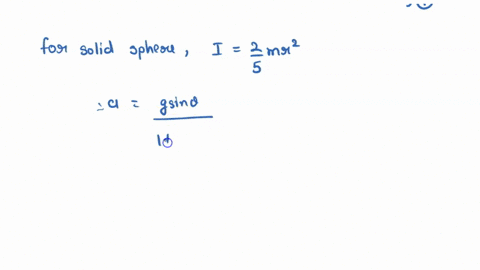 for solid sphere, I = 2/5 mr²
∴ a = gsinθ / 1+